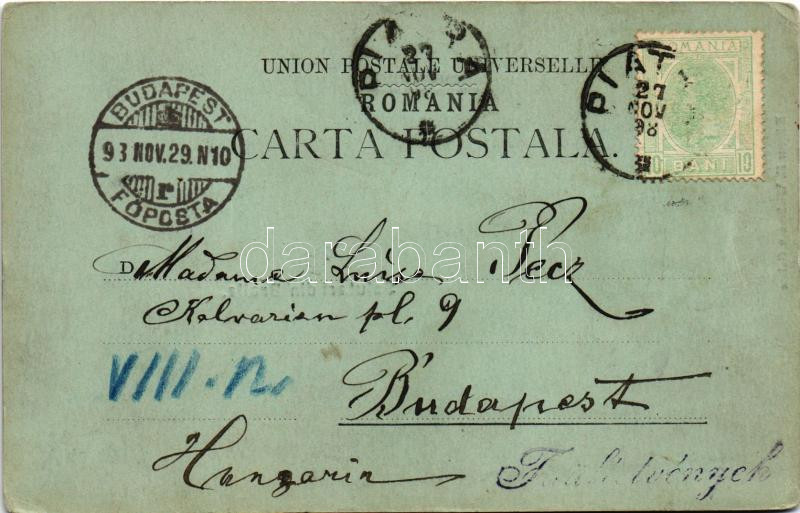 UNION POSTALE UNIVERSELLE
ROMANIA
CARTA POSTALA.
PIATRA
27
NOV
PIATRA
27
NOV
98
ROMANIA
10 BANI 10
BUDAPEST
98 NOV. 29. N10
r
FŐPOSTA
D Madame Luise Pecz
Kalvarien pl. 9
VIII.
Budapest
Hungaria
darabanth